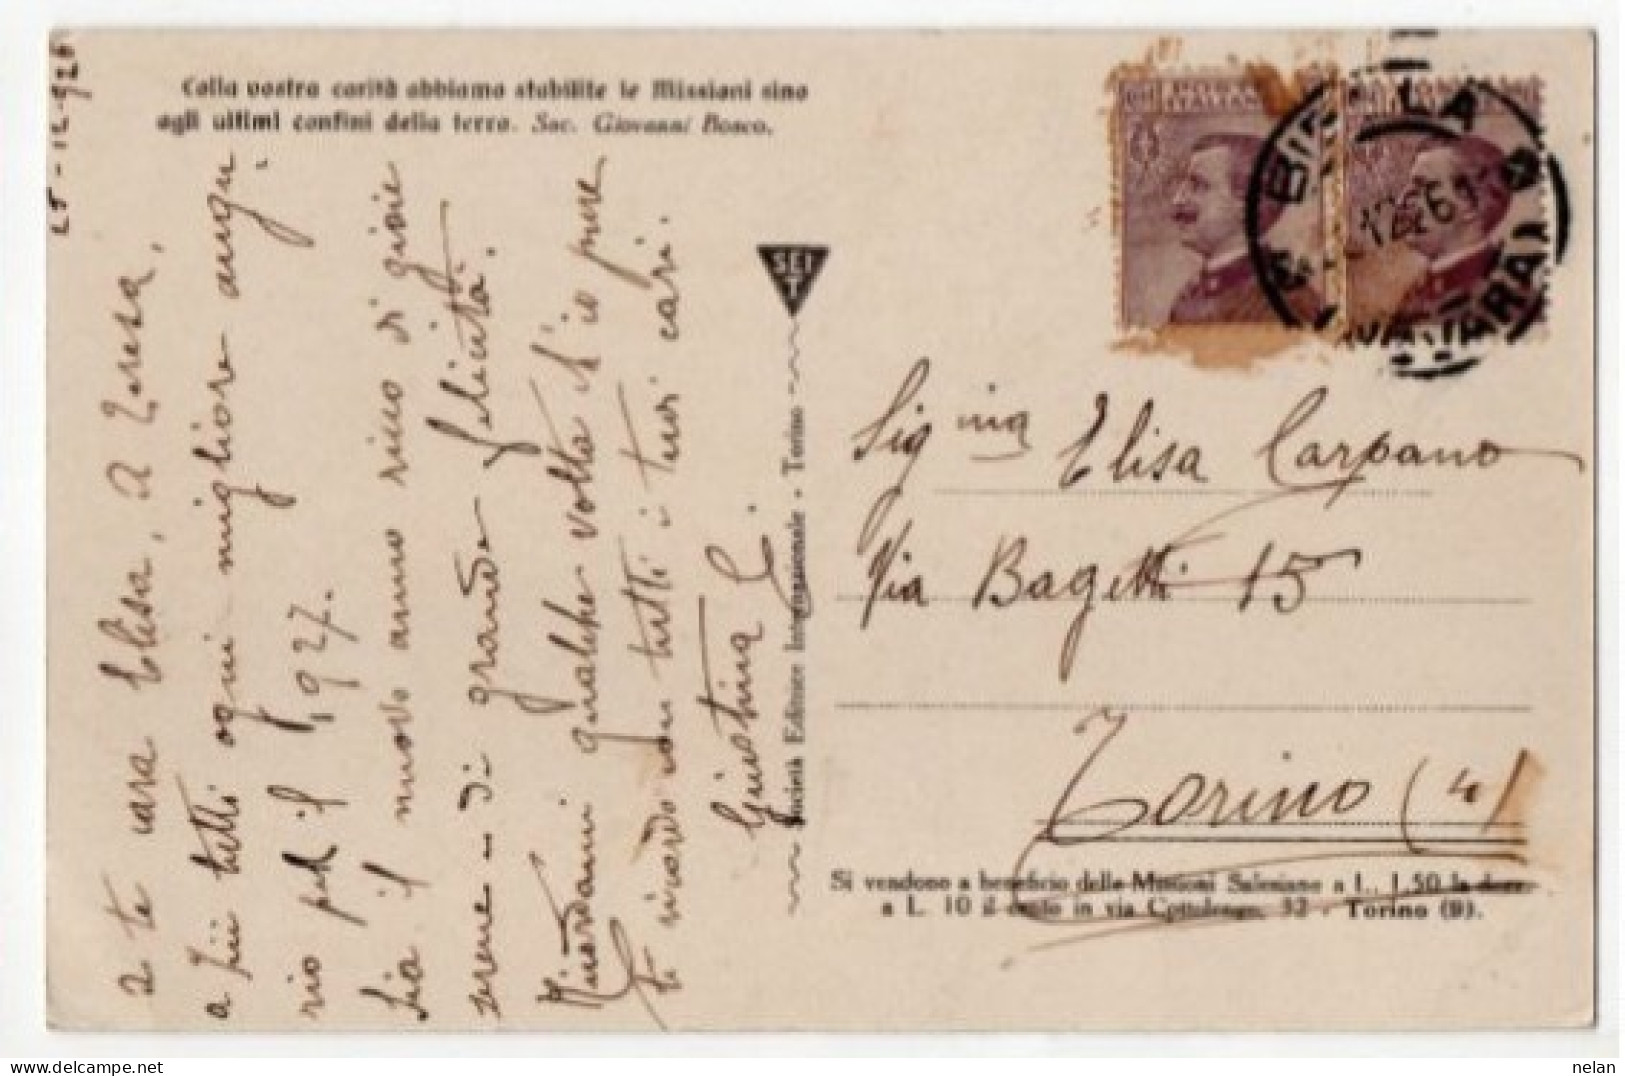 25-12-926
Colla vostra carità abbiamo stabilite le Missioni sino
agli ultimi confini della terra. Sac. Giovanni Bosco.
a te cara Elisa, a Teresa,
a tutti ogni migliore augu
rio pel 1927.
Sia il nuovo anno ricco di gioie
serene - di grande felicità.
Ricordami qualche volta ch'io pure
ti ricordo con tutti i tuoi cari.
Giustina
SEI
T
Società Editrice Internazionale - Torino
POSTE
ITALIANE
BIELLA
(NOVARA)
Sig.ina Elisa Carpano
Via Bagetti 15
Torino (4)
Si vendono a beneficio delle Missioni Salesiane a L. 1,50 la dozz.
a L. 10 il cento in via Cottolengo, 32 - Torino (9).
nelan